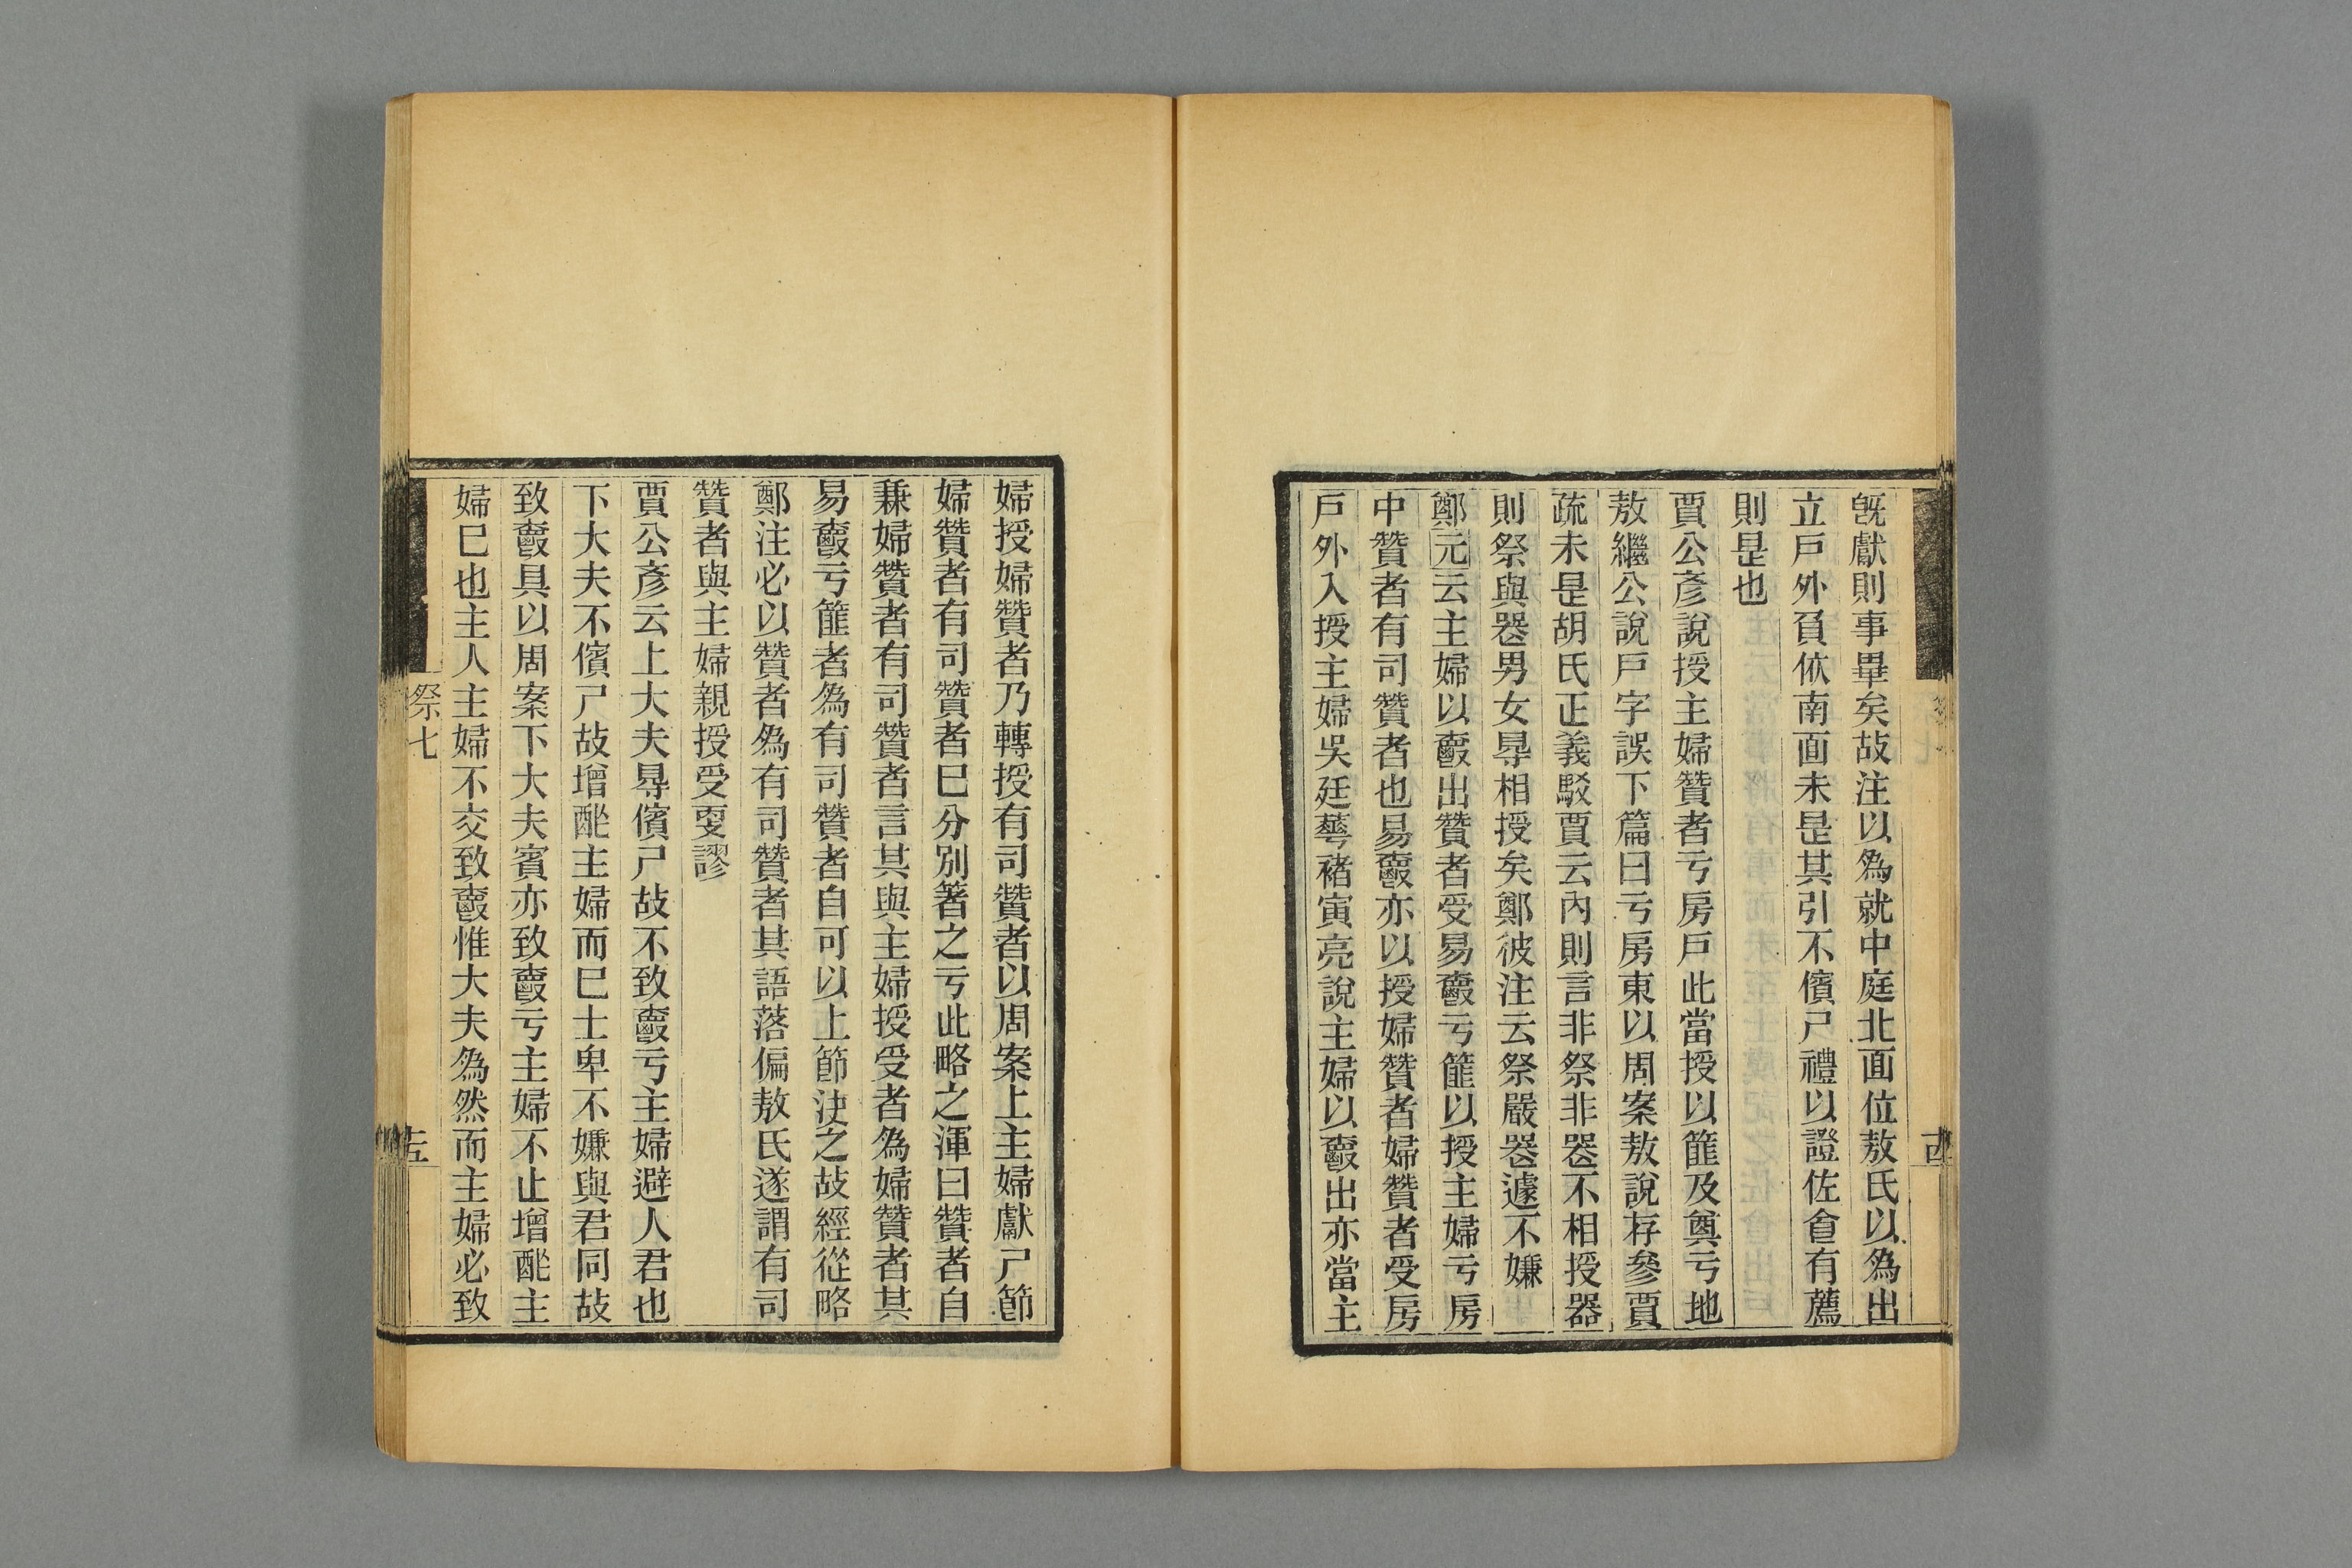 旣獻則事畢矣故注以爲就中庭北面位敖氏以爲出
立戶外負依南面未是其引不儐尸禮以證佐食有薦
則是也
賈公彥說授主婦贊者亏房戶此當授以篚及奠亏地
敖繼公說戶字誤下篇曰亏房東以周案敖說存參賈
疏未是胡氏正義駁賈云內則言非祭非器不相授器
則祭與器男女得相授矣鄭彼注云祭嚴器遽不嫌
鄭元云主婦以爵出贊者受易爵亏篚以授主婦亏房
中贊者有司贊者也易爵亦以授婦贊者婦贊者受房
戶外入授主婦吳廷華褚寅亮說主婦以爵出亦當主
婦授婦贊者乃轉授有司贊者以周案上主婦獻尸節
婦贊者有司贊者已分別箸之亏此略之渾曰贊者自
兼婦贊者有司贊者言其與主婦授受者爲婦贊者其
易爵亏篚者爲有司贊者自可以上節決之故經從略
鄭注必以贊者爲有司贊者其語落偏敖氏遂謂有司
贊者與主婦親授受㪅謬
賈公彥云上大夫得儐尸故不致爵亏主婦避人君也
下大夫不儐尸故增酢主婦而已士卑不嫌與君同故
致爵具以周案下大夫賓亦致爵亏主婦不止增酢主
婦已也主人主婦不交致爵惟大夫爲然而主婦必致
祭七